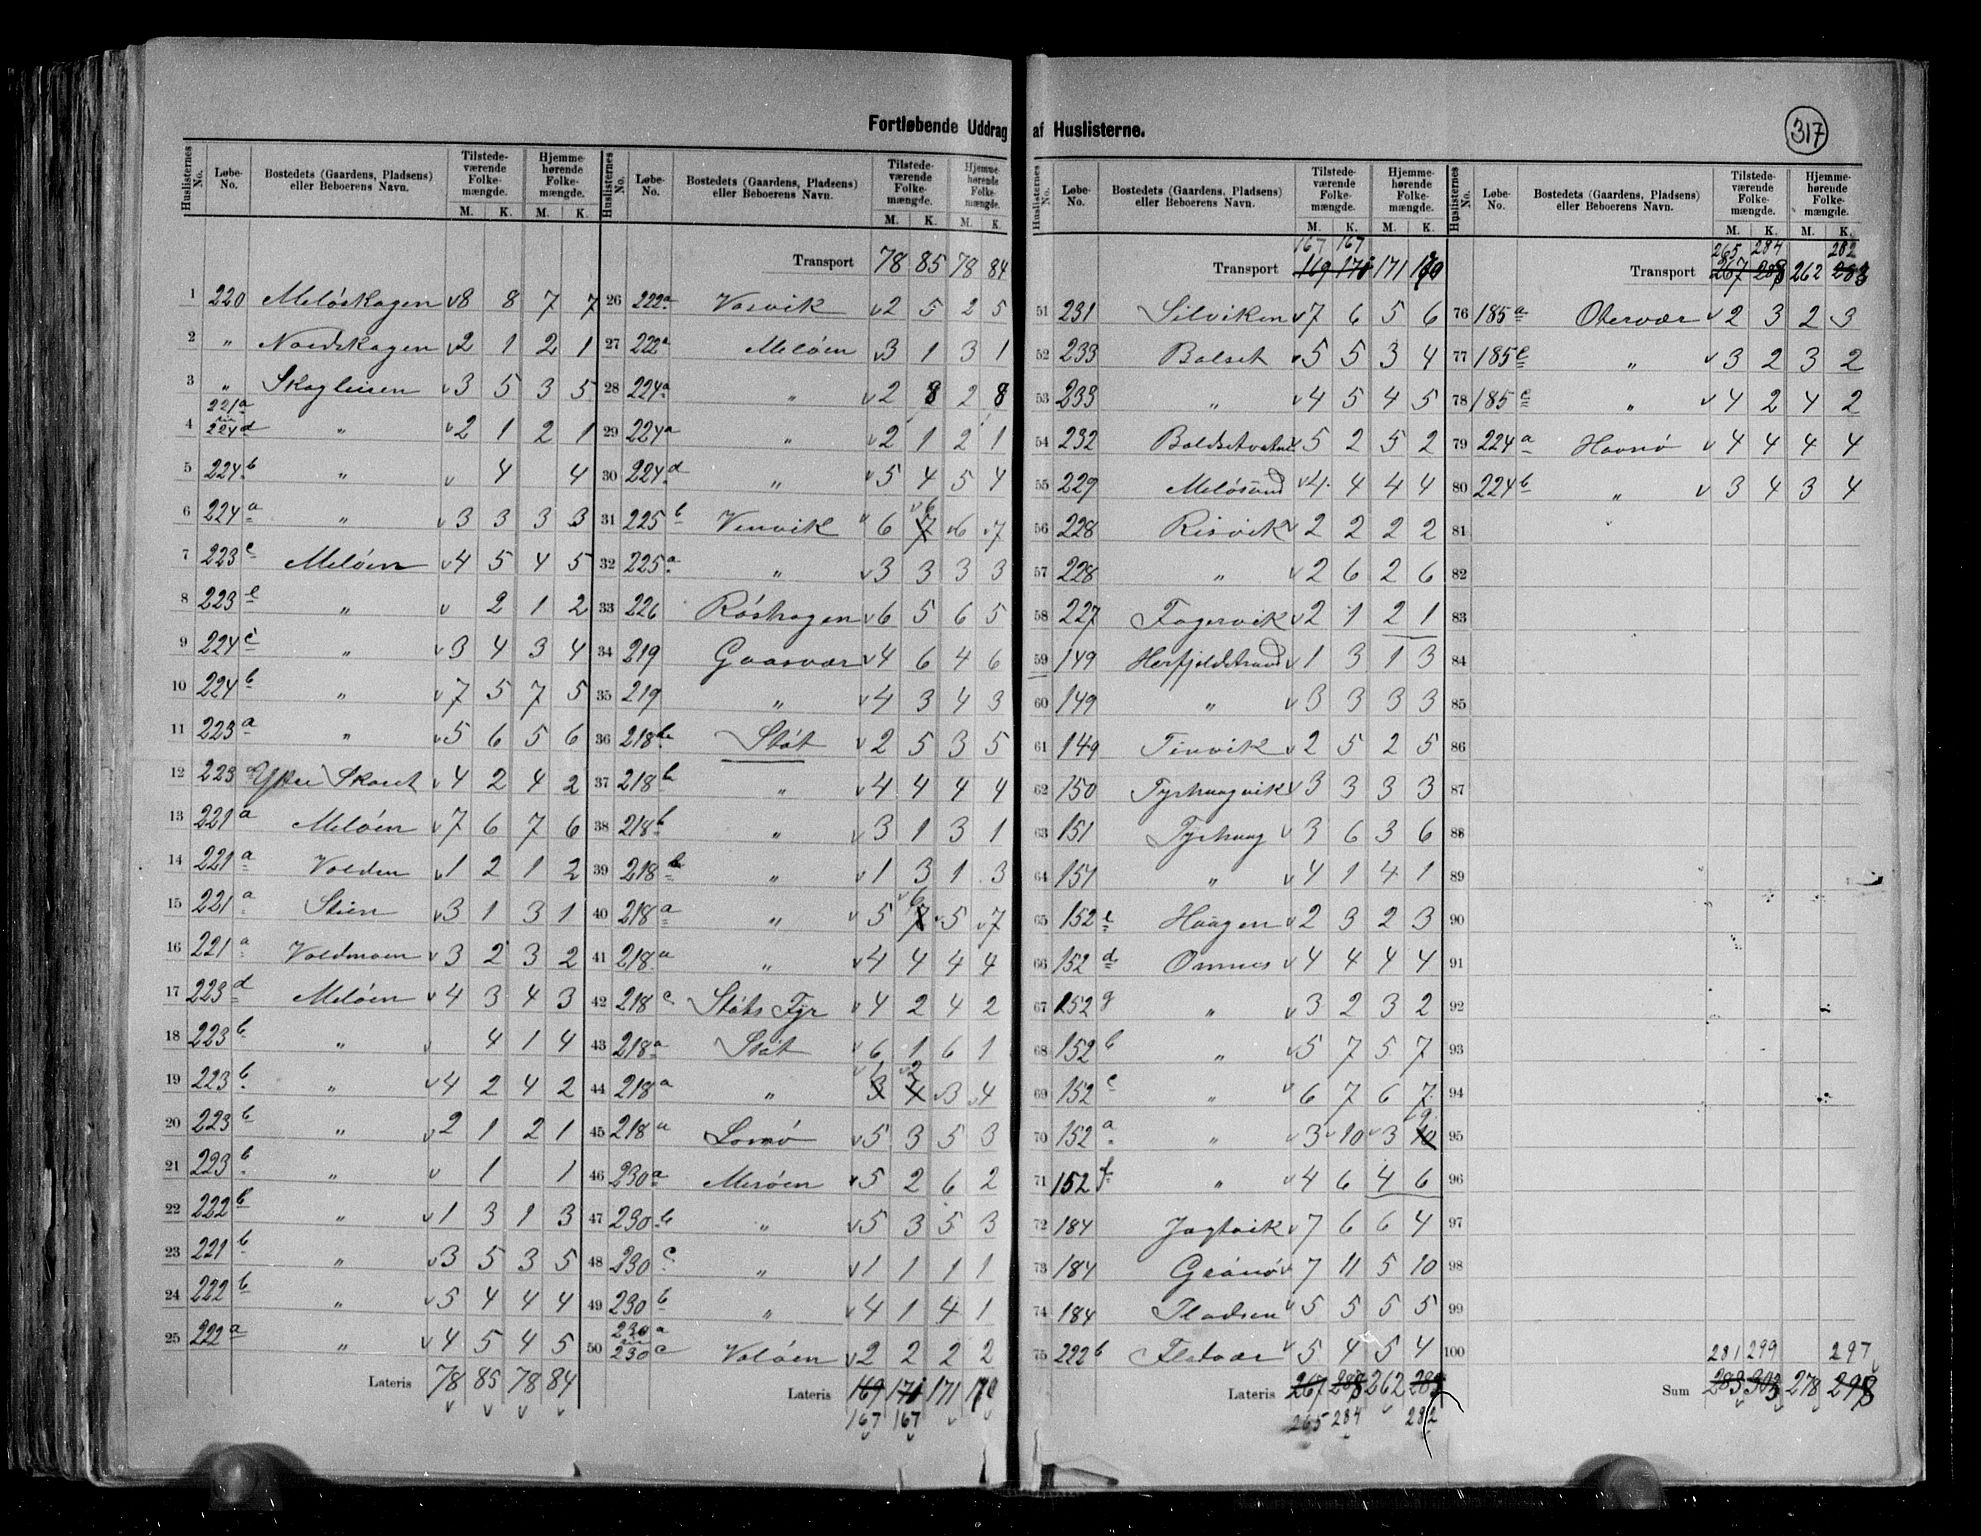 Fortløbende Uddrag af Huslisterne.
317
Huslisternes No. Løbe-No. Bostedets (Gaardens, Pladsens) eller Beboerens Navn. Tilstedeværende Folkemængde. M. K. Hjemmehørende Folkemængde. M. K.
1 220 Meløskagen 8 8 7 7
2 " Nordskagen 2 1 2 1
3 " Skogleisen 3 5 3 5
4 221a 224d " 2 1 2 1
5 224b " 4 4
6 224a " 3 3 3 3
7 223c Meløen 4 5 4 5
8 223e " 2 1 2
9 224c " 3 4 3 4
10 224b " 7 5 7 5
11 223a " 5 6 5 6
12 223a Ytre Skaret 4 2 4 2
13 221a Meløen 7 6 7 6
14 221a Volden 1 2 1 2
15 221a Stien 3 1 3 1
16 221a Voldmoen 3 2 3 2
17 223d Meløen 4 3 4 3
18 223b " 4 1 4
19 223b " 4 2 4 2
20 223b " 2 1 2 1
21 223b " 1 1
22 222b " 1 3 1 3
23 221b " 3 5 3 5
24 222b " 5 4 4 4
25 222a " 4 5 4 5
Lateris 78 85 78 84
Huslisternes No. Løbe-No. Bostedets (Gaardens, Pladsens) eller Beboerens Navn. Tilstedeværende Folkemængde. M. K. Hjemmehørende Folkemængde. M. K.
Transport 78 85 78 84
26 222a Vasvik 2 5 2 5
27 222a Meløen 3 1 3 1
28 224a " 2 8 2 8
29 224a " 2 1 2 1
30 224d " 5 4 5 4
6
31 225b Venvik 6 7 6 7
32 225a " 3 3 3 3
33 226 Røshagen 6 5 6 5
34 219 Gaasvær 4 6 4 6
35 219 " 4 3 4 3
36 218b Støt 2 5 3 5
37 218b " 4 4 4 4
38 218b " 3 1 3 1
39 218b " 1 3 1 3
6
40 218a " 5 7 5 7
41 218a " 4 4 4 4
42 218c Støts Fyr 4 2 4 2
43 218a Støt 6 1 6 1
1 2
44 218a " 3 4 3 4
45 218a 5 3 5 3
46 230a Mesøen 5 2 6 2
47 230b " 5 3 5 3
48 230c " 1 1 1 1
49 230b " 4 1 4 1
50 230a 230c Valøen 2 2 2 2
Lateris 169 171 171 170
167 167
Huslisternes No. Løbe-No. Bostedets (Gaardens, Pladsens) eller Beboerens Navn. Tilstedeværende Folkemængde. M. K. Hjemmehørende Folkemængde. M. K.
167 167
Transport 169 171 171 170
51 231 Selviken 7 6 5 6
52 233 Bolset 5 5 3 4
53 233 " 4 5 4 5
54 232 Boldsetvatnet 5 2 5 2
55 229 Meløsund 4 4 4 4
56 228 Risvik 2 2 2 2
57 228 " 2 6 2 6
58 227 Fagervik 2 1 2 1
59 149 Herfjeldstrand 1 3 1 3
60 149 " 3 3 3 3
61 149 Finvik 2 5 2 5
62 150 Tyrhaugvik 3 3 3 3
63 151 Tyrhaug 3 6 3 6
64 151 " 4 1 4 1
65 152e Haugen 2 3 2 3
66 152d Ornnes 4 4 4 4
67 152g " 3 2 3 2
68 152b " 5 7 5 7
69 152c " 6 7 6 7
9
70 152a " 3 10 3 10
71 152f " 4 6 4 6
72 184 Jagtvik 7 6 6 4
73 184 Grønø 7 11 5 10
74 184 Fladsen 5 5 5 5
75 222b Flatvær 5 4 5 4
Lateris 267 288 262 283
265 284 282
Huslisternes No. Løbe-No. Bostedets (Gaardens, Pladsens) eller Beboerens Navn. Tilstedeværende Folkemængde. M. K. Hjemmehørende Folkemængde. M. K.
265 284 282
Transport 267 288 262 283
76 185a Otervær 2 3 2 3
77 185b " 3 2 3 2
78 185c " 4 2 4 2
79 224a Havnø 4 4 4 4
80 224b " 3 4 3 4
81
82
83
84
85
86
87
88
89
90
91
92
93
94
95
96
97
98
99
100
281 299 297
Sum 283 303 278 298